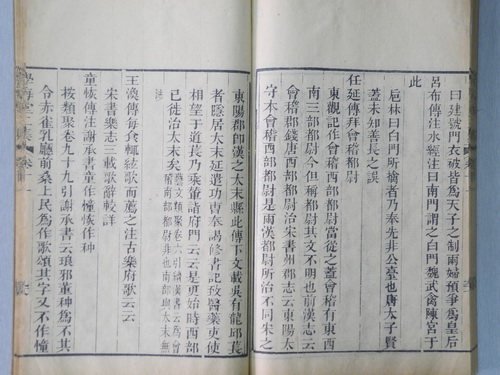 曰建號門衣破皆為天子之制兩婦預爭為皇后
呂布傳注水經注曰南門謂之白門魏武禽陳宮于
此
巵林曰白門所擒者乃奉先非公臺也唐太子賢
蓋未知善長之誤
任延傳拜會稽都尉
東觀記作會稽西部都尉當從之蓋會稽有東西
南三部都尉今但稱都尉其文不明也前漢志云
會稽郡錢唐西部都尉治宋書州郡志云東陽太
守本會稽西部都尉是兩漢都尉所治不同宋之
東陽郡即漢之太末縣此傳下文載吳有龍邱萇
者隱居太末延遣功曹奉謁修書記致醫藥吏使
相望于道萇乃乘輦詣府門云云是更始時西部
已徙治太末矣藝文類聚卷六引續漢書云為會稽南部都尉非也南部與太末無
涉
王渙傳每食輒絃歌而薦之注古樂府歌云云
宋書樂志三載歌辭較詳
童恢傳注謝承書童作憧恢作种
按類聚卷九十九引謝承書云琅邪董种為不其
令赤雀乳廳前桑上民為作歌頌其字又不作憧